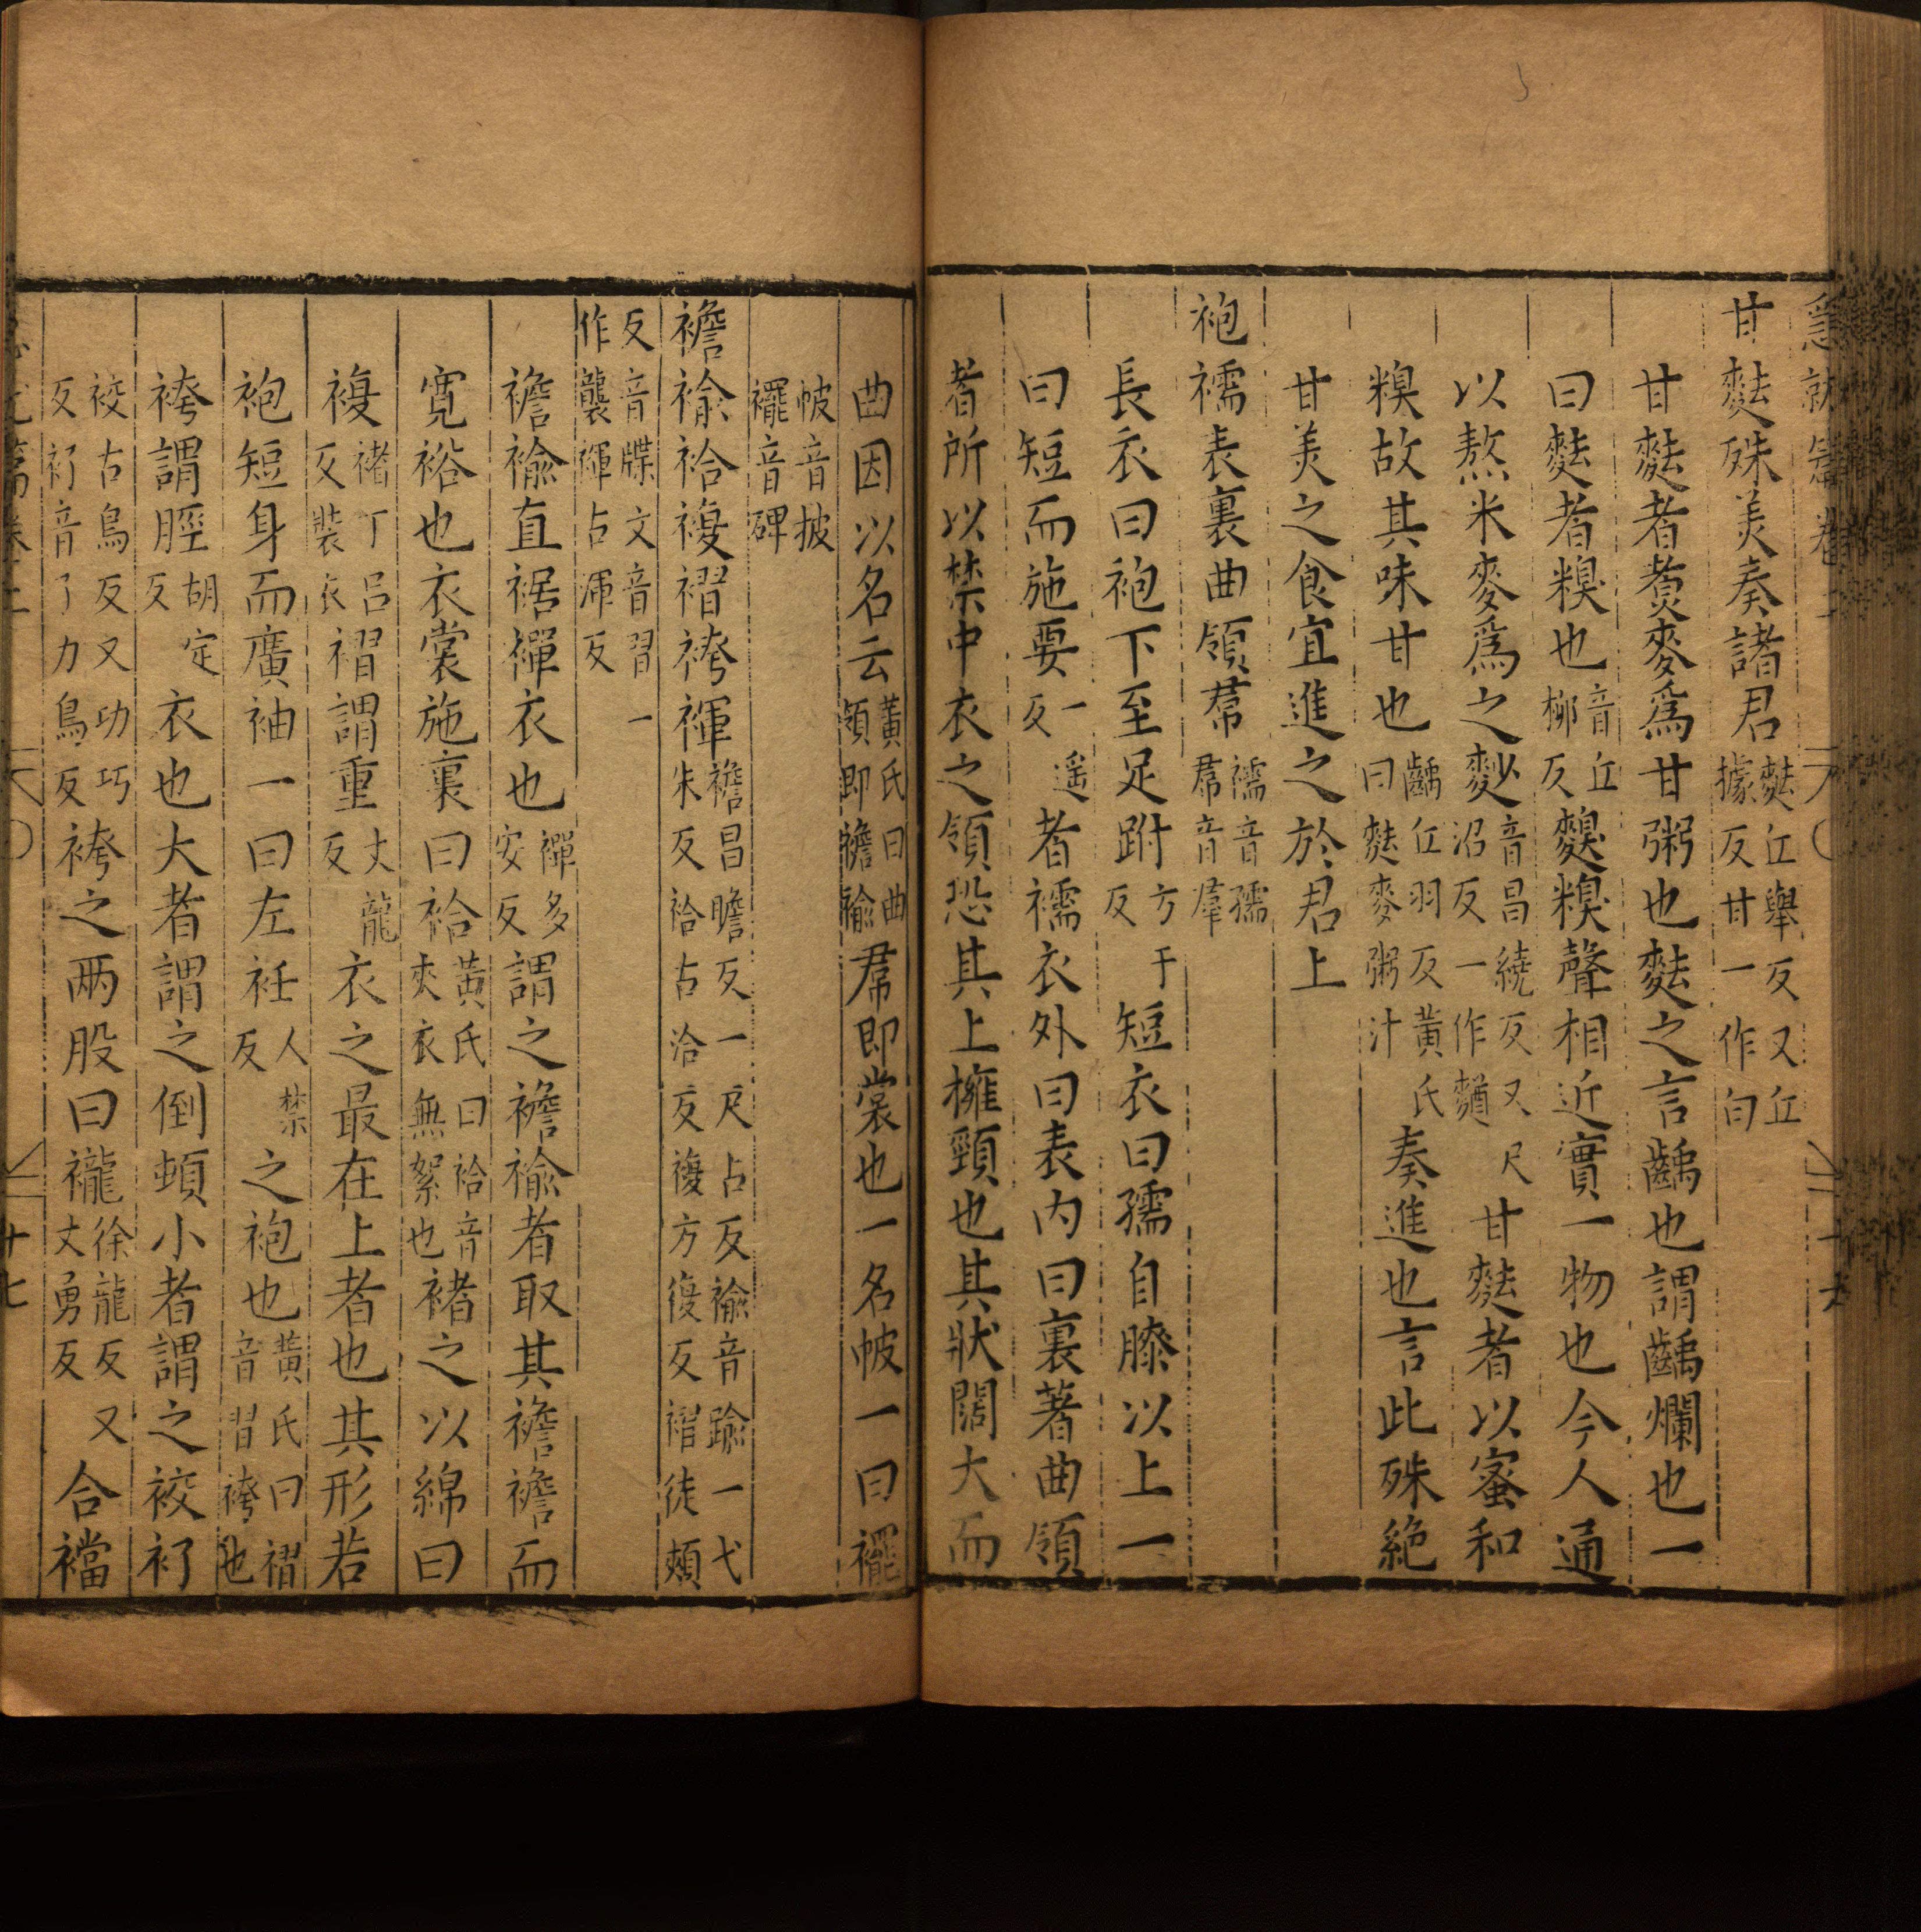 急就篇卷二
十六
甘麮殊美奏諸君麮丘舉反又丘據反甘一作白
甘麮者煑麥爲甘粥也麮之言齲也謂齲爛也一
曰麮者糗也音丘柳反䴢糗聲相近實一物也今人通
以熬米麥爲之麨音昌繞反又尺沼反一作䵌甘麮者以蜜和
糗故其味甘也齲丘羽反黃氏曰麮麥粥汁奏進也言此殊絶
甘美之食宜進之於君上
袍襦表裏曲領帬襦音孺帬音羣
長衣曰袍下至足跗方于反短衣曰孺自膝以上一
曰短而施要一遥反者襦衣外曰表内曰裏著曲領
者所以禁中衣之領恐其上擁頸也其狀闊大而
曲因以名云黃氏曰曲領即襜褕帬即裳也一名帔一曰襬
帔音披襬音碑
襜褕袷複褶袴褌襜昌瞻反一尺占反褕音踰一弋朱反袷古洽反複方復反褶徒頰
反音牒文音習一作襲褌占渾反
襜褕直裾襌衣也襌多安反謂之襜褕者取其襜襜而
寬裕也衣裳施裏曰袷黃氏曰袷音夾衣無絮也褚之以綿曰
複褚丁吕反裝衣褶謂重丈龍反衣之最在上者也其形若
袍短身而廣袖一曰左衽人禁反之袍也黃氏曰褶音習袴也
袴謂脛胡定反衣也大者謂之倒頓小者謂之䘨𧘈
䘨古鳥反又功巧反𧘈音了力鳥反袴之兩股曰襱徐龍反又丈勇反合襠
十七